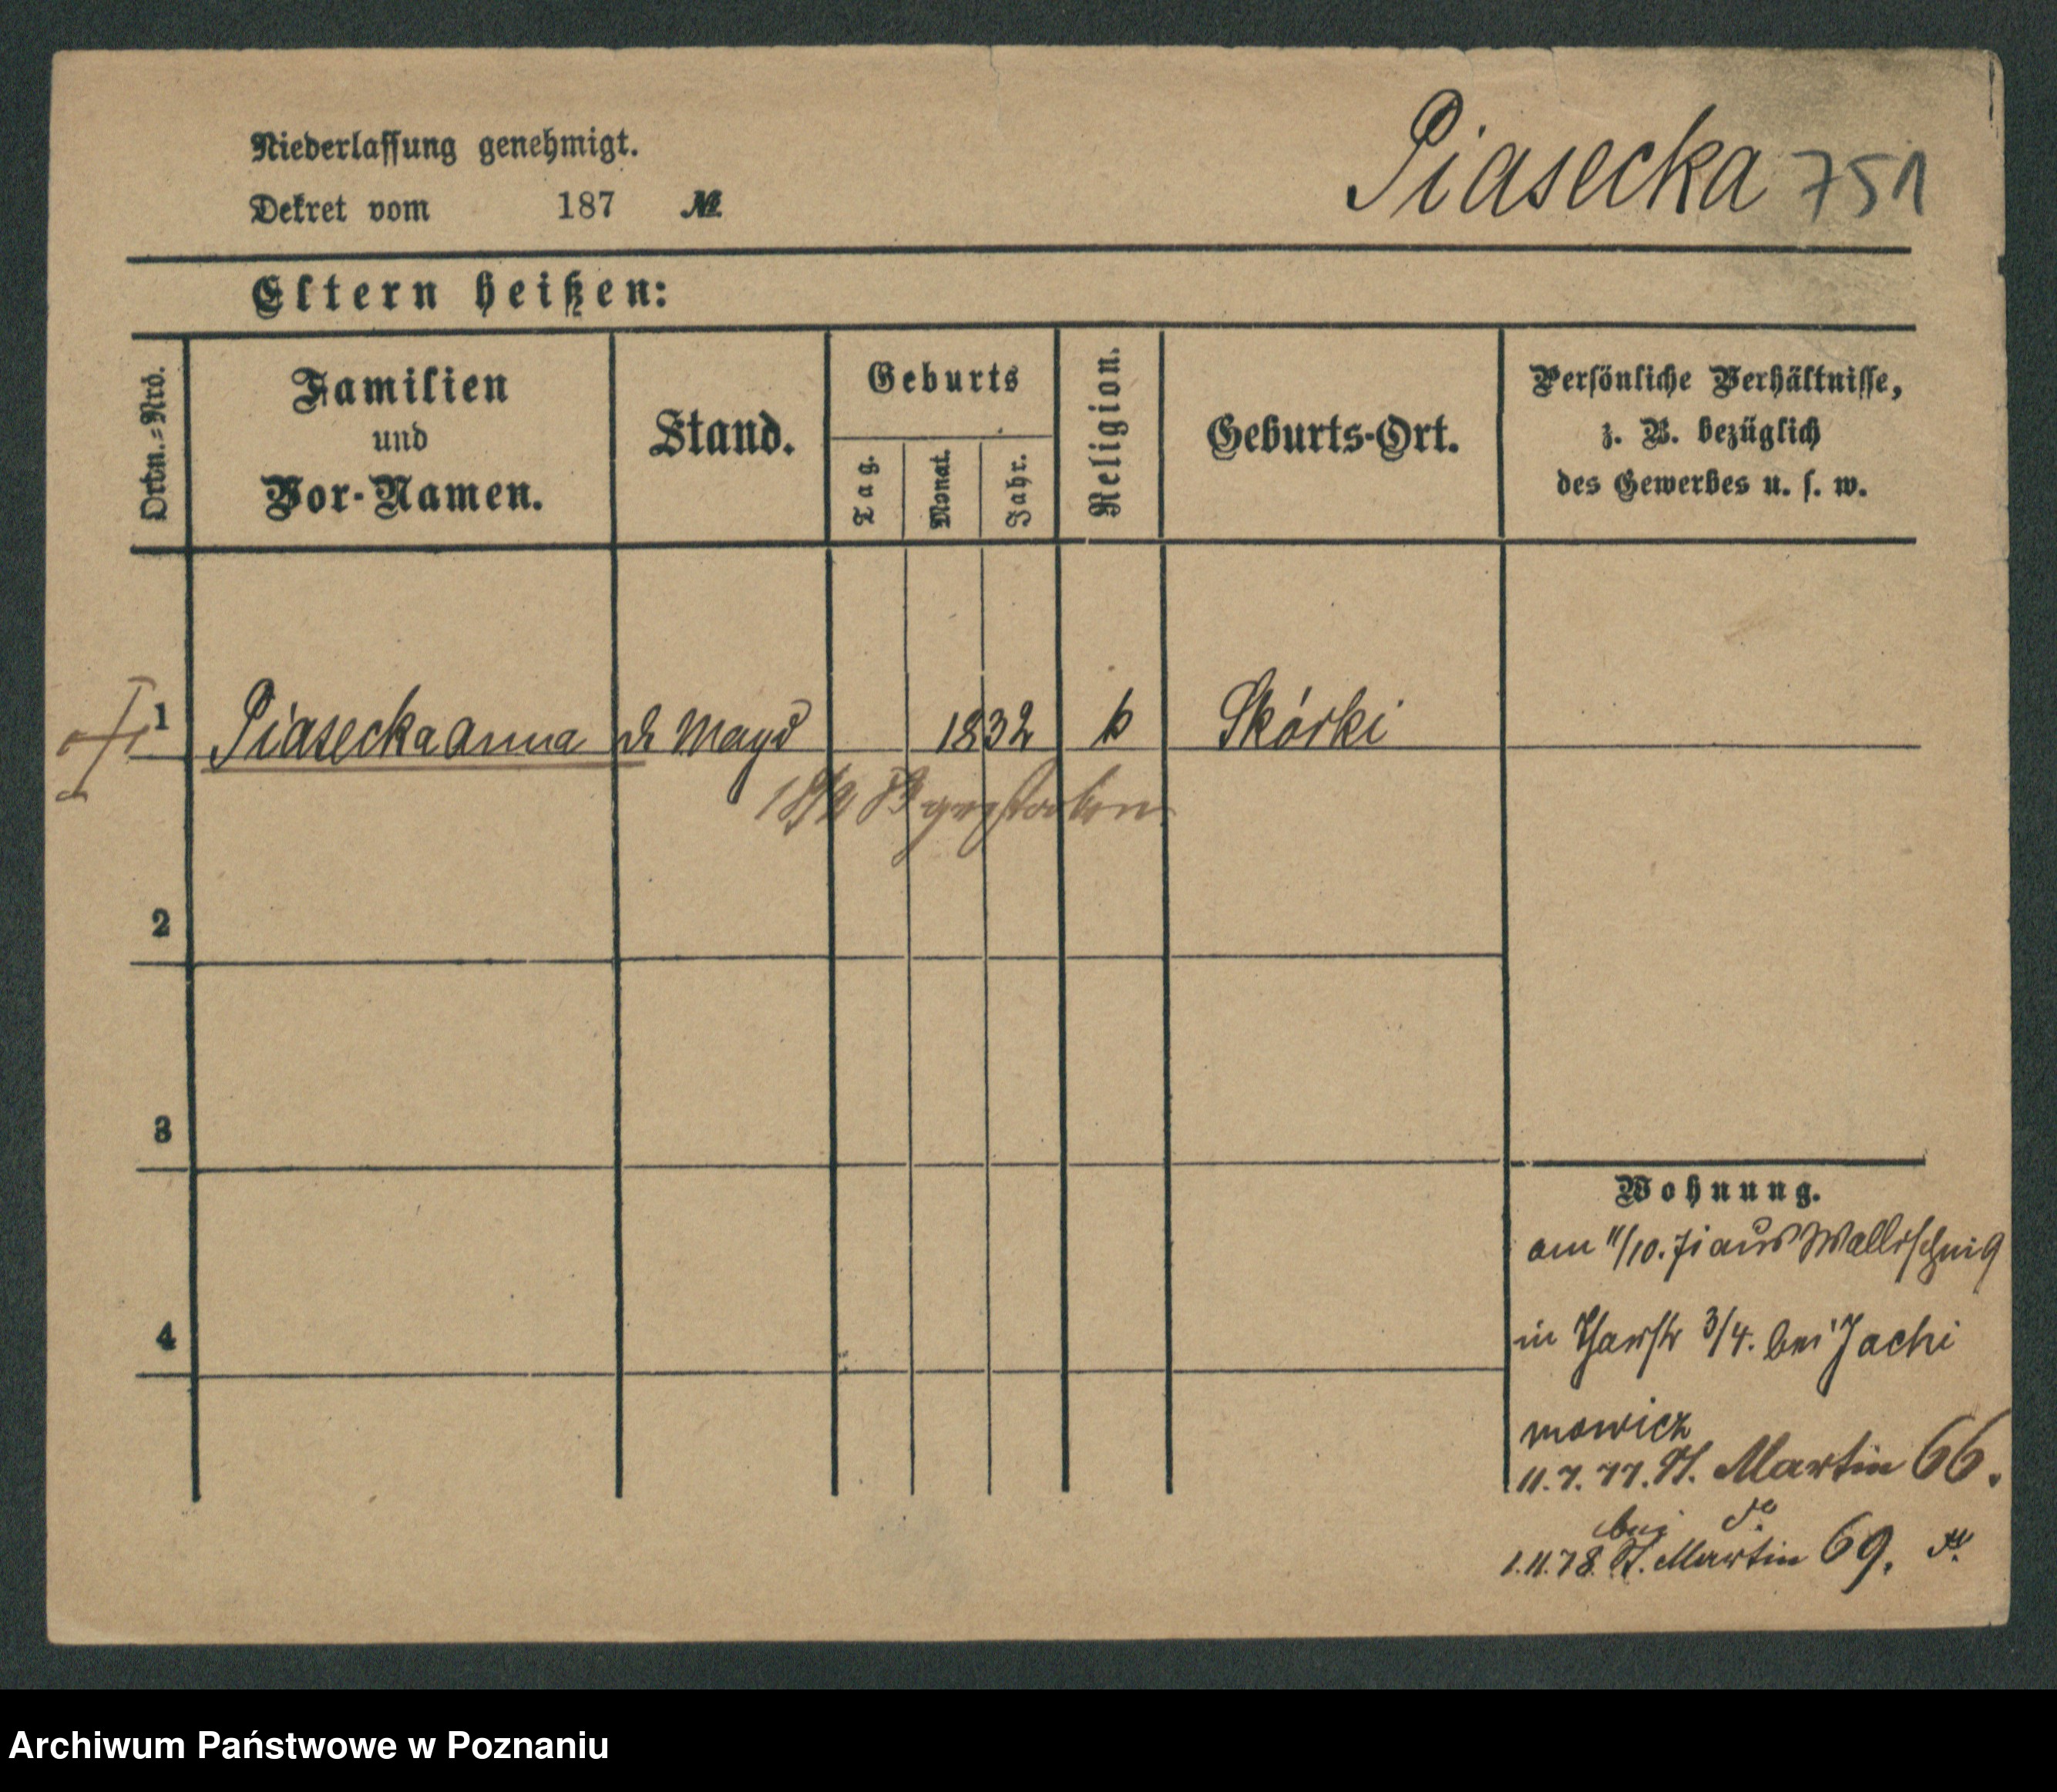 Niederlassung genehmigt.
Dekret vom 187 №
Piasecka 751
Eltern heißen:
Ordn.=Nro.
Familien
und
Vor-Namen.
Stand.
Geburts
Tag.
Monat.
Jahr.
Religion.
Geburts-Ort.
Persönliche Verhältnisse,
z. B. bezüglich
des Gewerbes u. s. w.
1 Piasecka Anna d Magd 1832 k Skórki
gestorben
2
3
4
Wohnung.
am 11/10. aus Wallischei 9
in 3/4. bei Jachi
mowicz
11.7.77. St. Martin 66.
bei do
1.11.78. St. Martin 69. do
Archiwum Państwowe w Poznaniu